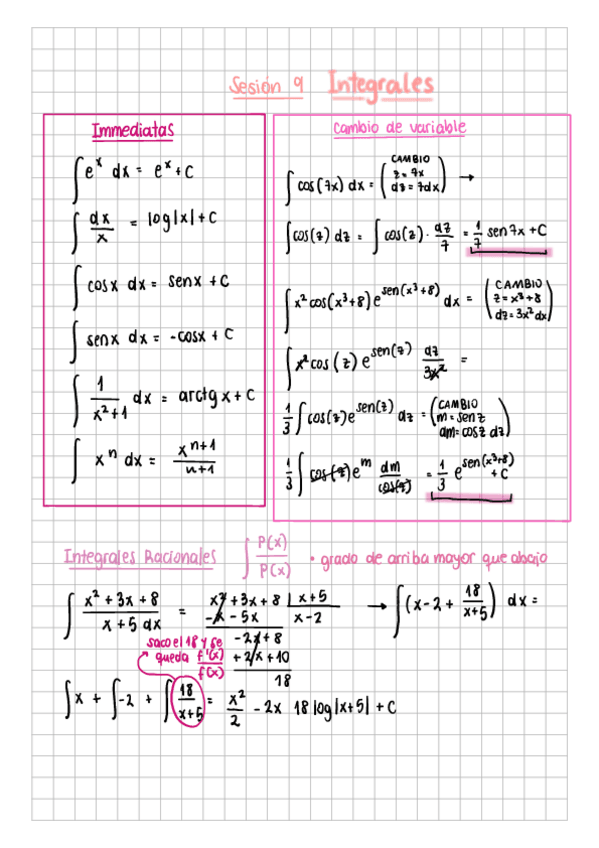 Sesión 9 Integrales
Immediatas
∫ e^x dx = e^x + C
∫ dx/x = log|x| + C
∫ cosx dx = senx + C
∫ senx dx = -cosx + C
∫ 1/(x²+1) dx = arctg x + C
∫ x^n dx = x^(n+1)/(n+1)
Cambio de variable
∫ cos(7x) dx = (CAMBIO z = 7x dz = 7dx) →
∫ cos(z) dz = ∫ cos(z) · dz/7 = 1/7 sen 7x + C
∫ x² cos(x³+8) e^(sen(x³+8)) dx = (CAMBIO z = x³+8 dz = 3x² dx)
∫ x² cos(z) e^(sen(z)) dz/3x² =
1/3 ∫ cos(z) e^(sen(z)) dz = (CAMBIO m = sen z dm = cos z dz)
1/3 ∫ cos(z) e^m dm/cos(z) = 1/3 e^(sen(x³+8)) + C
Integrales Racionales ∫ P(x)/P(x) · grado de arriba mayor que abajo
∫ (x²+3x+8)/(x+5 dx) = x²+3x+8 | x+5 → ∫ (x-2+ 18/(x+5)) dx =
-x² - 5x x-2
-2x+8
+2x+10
18
saco el 18 y se
queda f'(x)/f(x)
∫ x + ∫ -2 + ∫ 18/(x+5) = x²/2 - 2x 18 log|x+5| + C